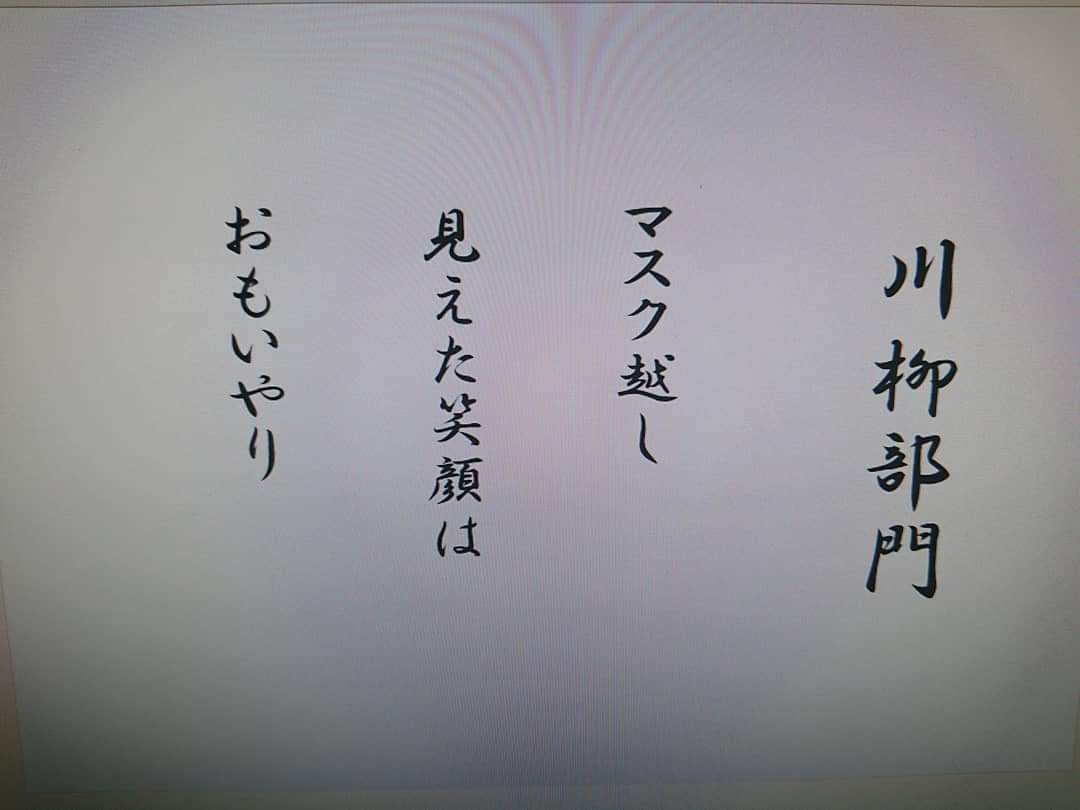 川柳部門
マスク越し
見えた笑顔は
おもいやり